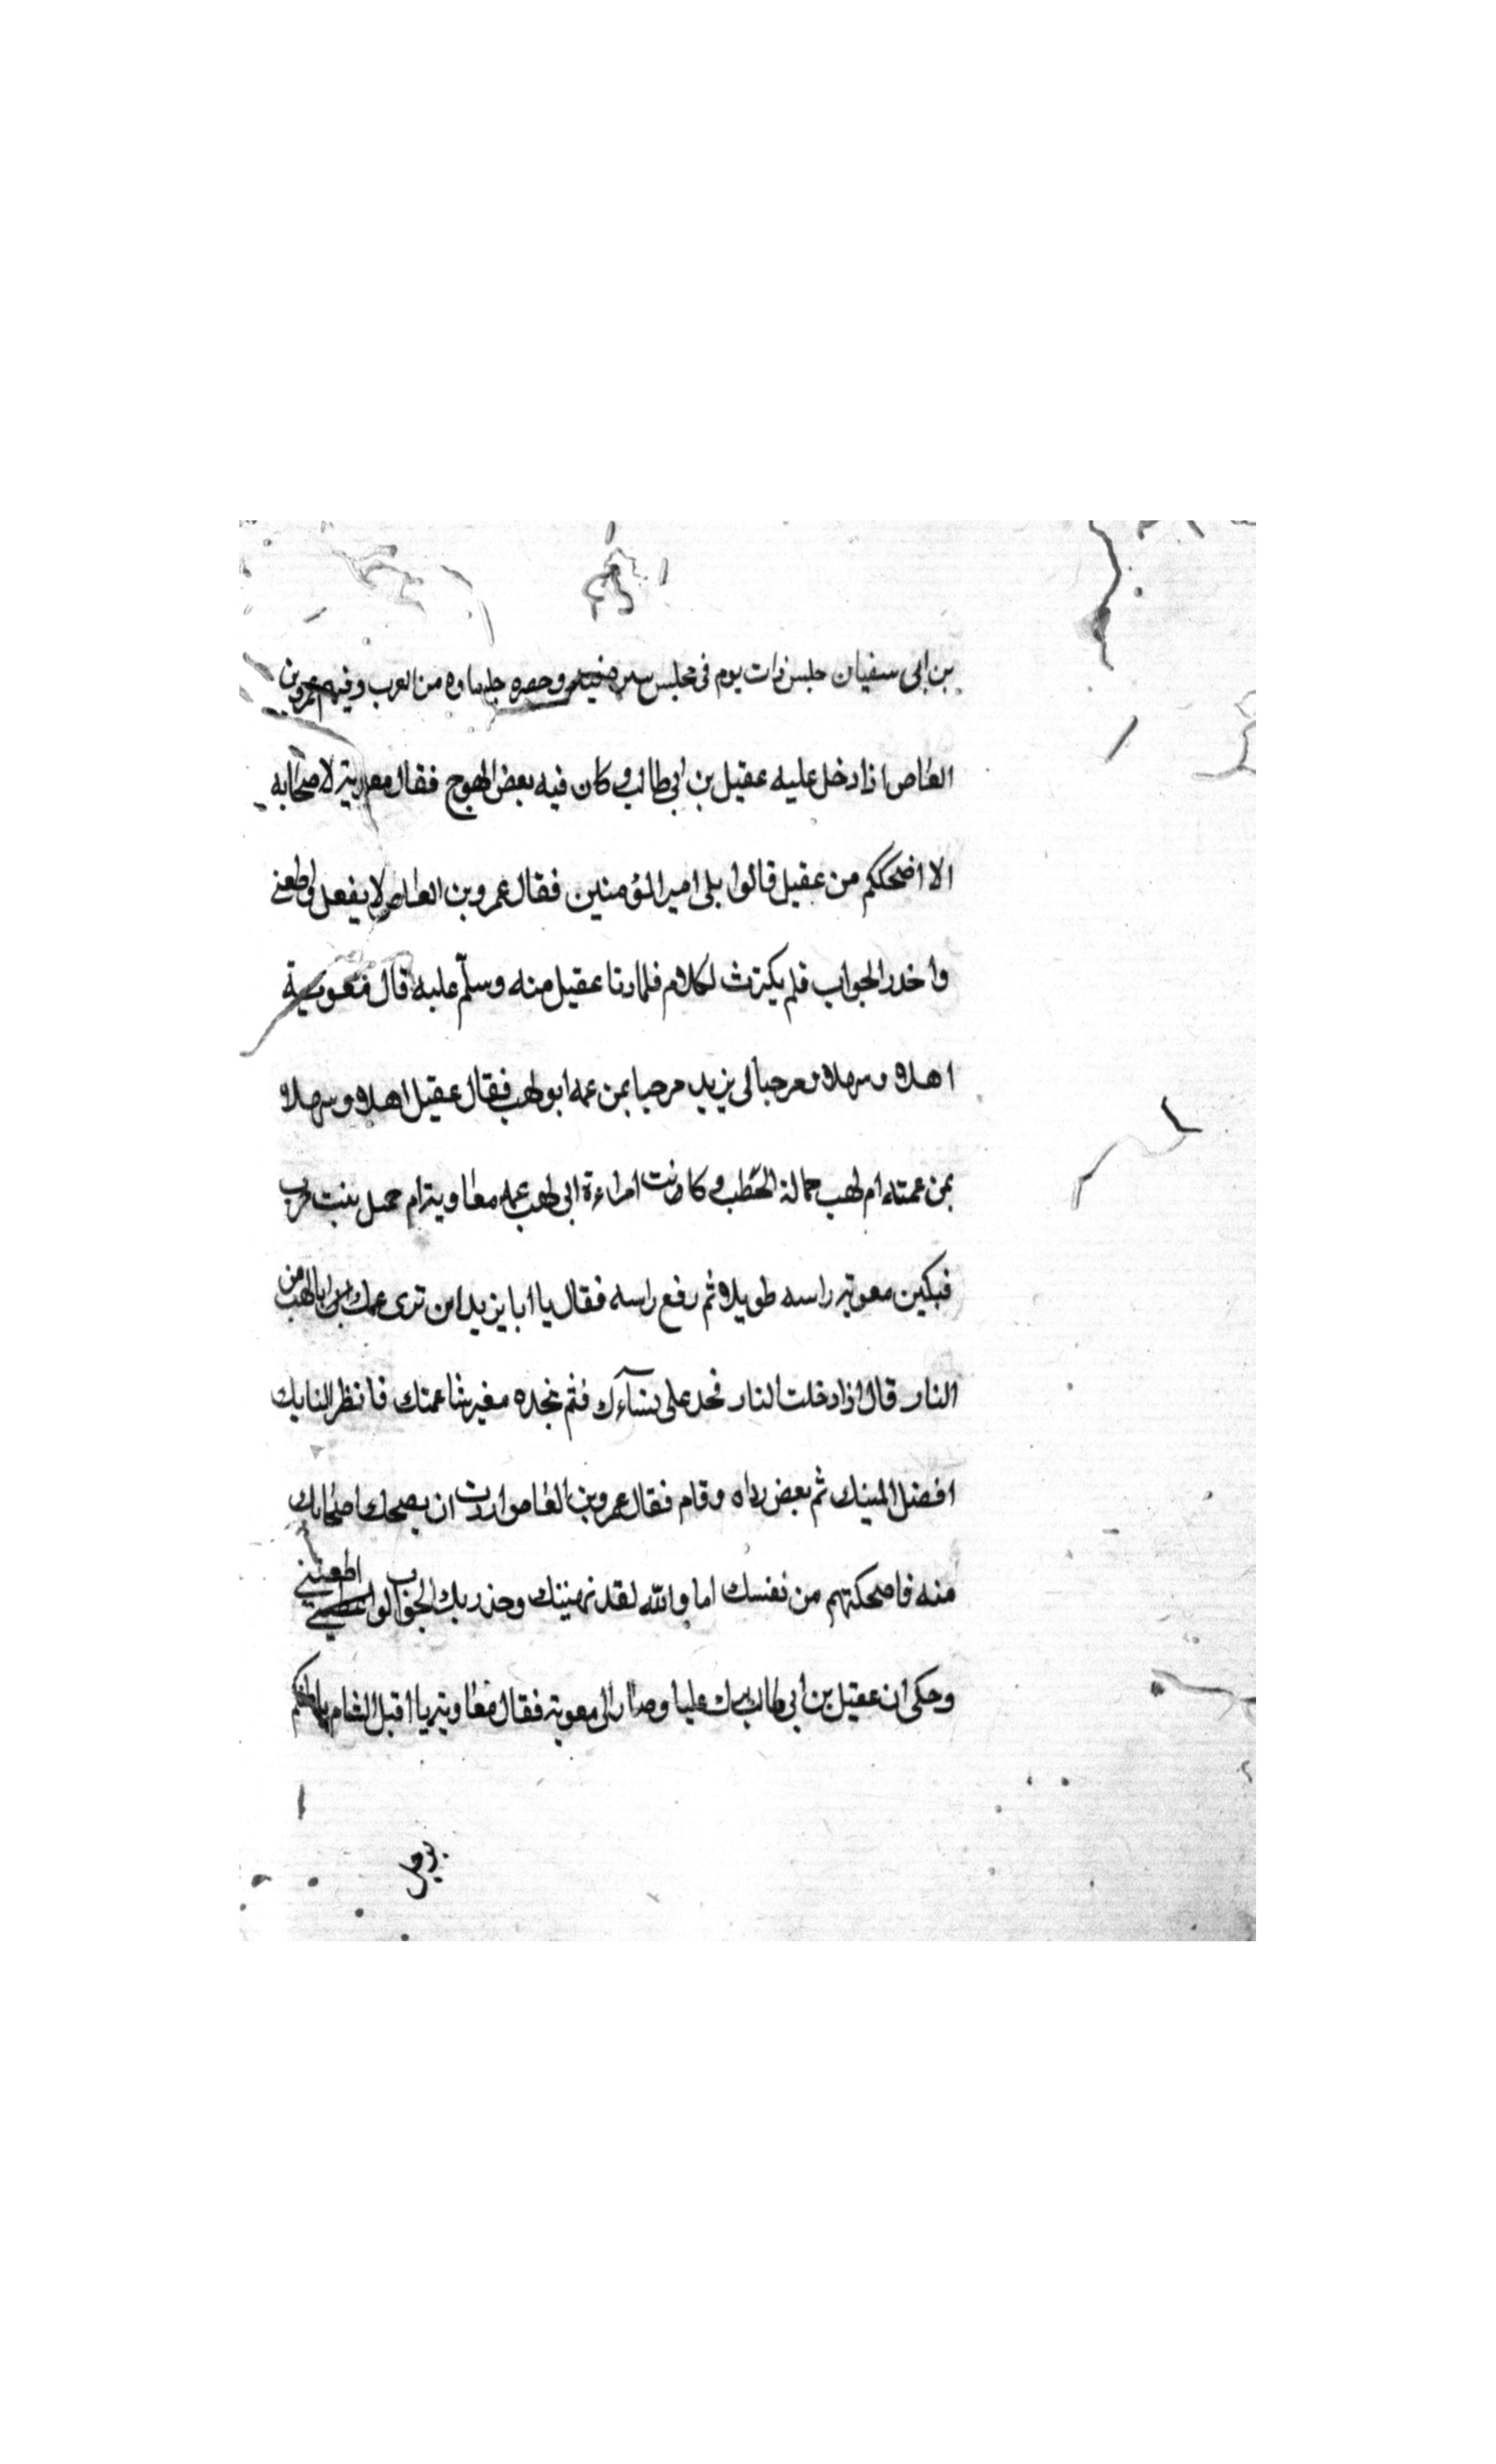 بن ابى سفيان جلس ذات يوم فى مجلس وحضره جلساوه من العرب وفيهم عمرو بن
العاص اذا دخل عليه عقيل بن ابى طالب و كان فيه بعض الهوج فقال معوية لاصحابه
الا اضحككم من عقيل قالوا بلى امير المؤمنين فقال عمرو بن العاص لا يفعل واطعنى
واحذر الجواب فلم يكترث لكلام فلما دنا عقيل منه وسلّم عليه قال معوية
اهلا وسهلا ومرحبا لى يزيد مرحبا بمن عمه ابو لهب فقال عقيل اهلا وسهلا
بمن عمته ام لهب حمالة الحطب و كانت امراءة ابى لهب عمه معاوية ام جميل بنت حرب
فنكس معوية راسه طويلا ثم رفع راسه فقال يا ابا يزيد اين ترى عمك ابا لهب من
النار قال اذا دخلت النار فخد على نساءرك فثم تجده عمتك فانظر النايك
افضل المينك ثم بعض رداه وقام فقال عمرو بن العاص اردت ان يضحك اصحابك
منه فاضحكتهم من نفسك اما والله لقد نهيتك وحذرتك الجواب لو اطعتنى
وحكى ان عقيل بن ابى طالب ترك عليا وصار الى معوية فقال معاوية يا اقبل الشام